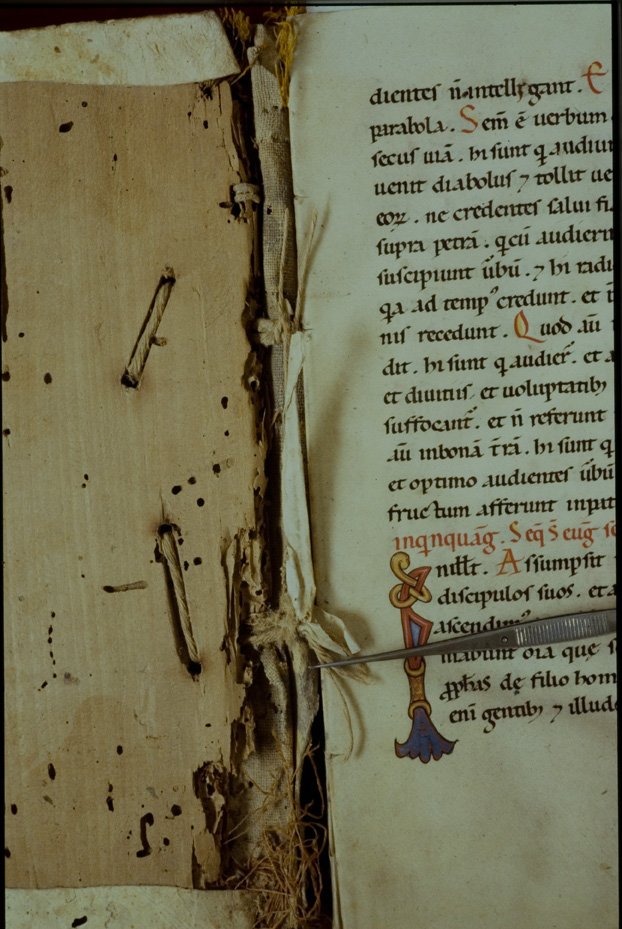 dientes n̄ intellygant. E
parabola. Sem̄ ē uerbum
secus uiā. hi sunt q audiun
uenit diabolus ⁊ tollit ue
eoꝝ. ne credentes salui fi
supra petrā. q̄ cū audieri
suscipiunt ūbū. ⁊ hi radi
q̄a ad temp᾽ credunt. et ī
nis recedunt. Quod aū
dit. hi sunt q audier̄. et a
et diuitiis et uoluptatib;
suffocant᾽. et n̄ referunt
aū in bonā t̄rā. hi sunt q
et optimo audientes ūbū
fructum afferunt in pat
in q̄nquāg. Seq̄ s̄ euḡ sc
I n illt̄. Assumpsit
discipulos suos. et a
ascendim᾽
mabunt oīa que s
ꝓph̄as dę filio hom
eni gentib; ⁊ illude